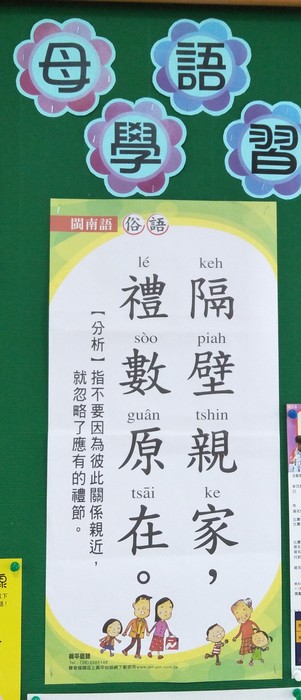 母語
學習
閩南語 俗語
keh piah tshin ke
隔壁親家，
lé sòo guân tsāi
禮數原在。
【分析】指不要因為彼此關係親近，
就忽略了應有的禮節。